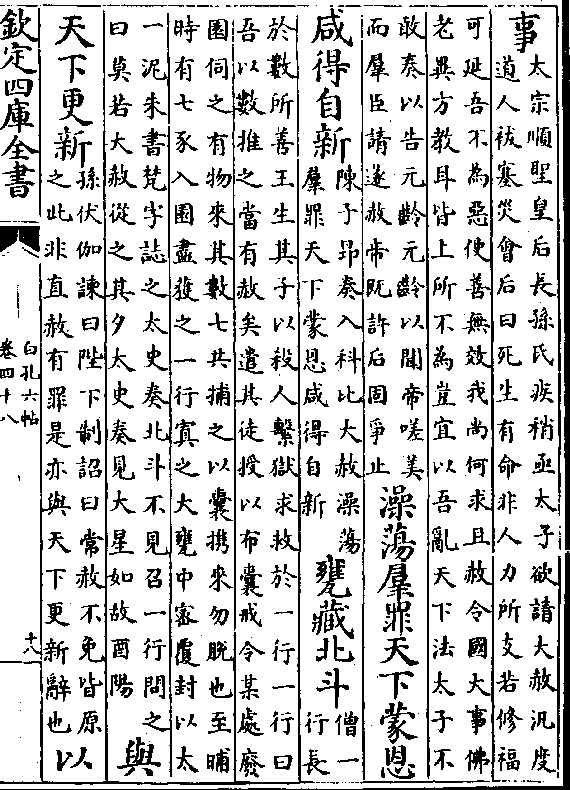 事
太宗順聖皇后長孫氏疾稍亟太子欲請大赦汎度
道人祓塞災會后曰死生有命非人力所支若修福
可延吾不為惡使善無效我尚何求且赦令國大事佛
老異方教耳皆上所不為豈宜以吾亂天下法太子不
敢奏以告元齡元齡以聞帝嗟美
而羣臣請遂赦帝既許后固爭止
澡蕩羣罪天下蒙恩
咸得自新
陳子昂奏入科比大赦澡蕩
羣罪天下蒙恩咸得自新
甕藏北斗
僧一
行長
於數所善王生其子以殺人繫獄求救於一行一行曰
吾以數推之當有赦矣遣其徒授以布囊戒令某處廢
園伺之有物來其數七共捕之以囊携來勿脫也至晡
時有七豕入園盡獲之一行寘之大甕中密覆封以太
一泥朱書梵字誌之太史奏北斗不見召一行問之
曰莫若大赦從之其夕太史奏見大星如故酉陽
與
天下更新
孫伏伽諫曰陛下制詔曰常赦不免皆原
之此非直赦有罪是亦與天下更新辭也
以
欽定四庫全書
白孔六帖
卷四十八
十八